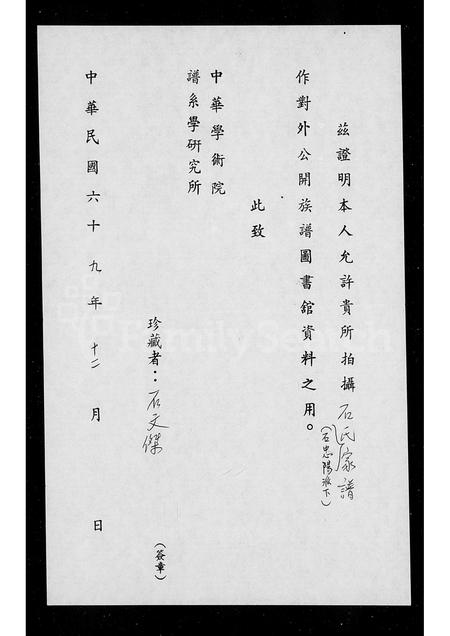 茲證明本人允許貴所拍攝石氏家譜
(石忠陽派下)
作對外公開族譜圖書舘資料之用。
此致
中華學術院
譜系學研究所
珍藏者：石文傑
(簽章)
中華民國六十九年十二月 日
FamilySearch